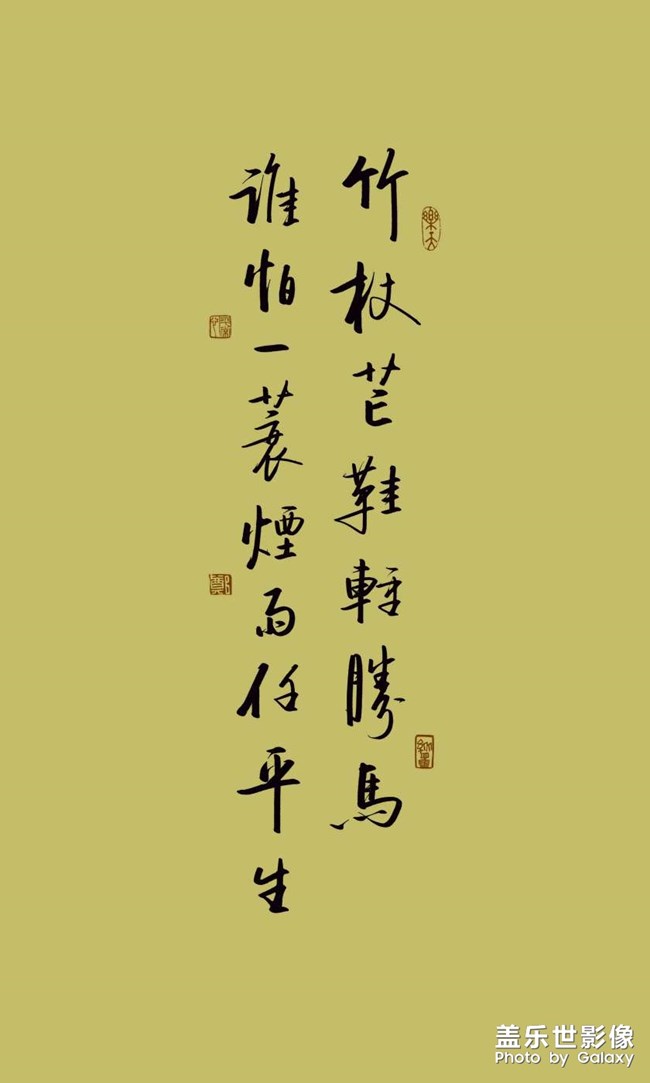 竹杖芒鞋輕勝馬
誰怕一蓑煙雨任平生
樂天
盖乐世影像
Photo by Galaxy